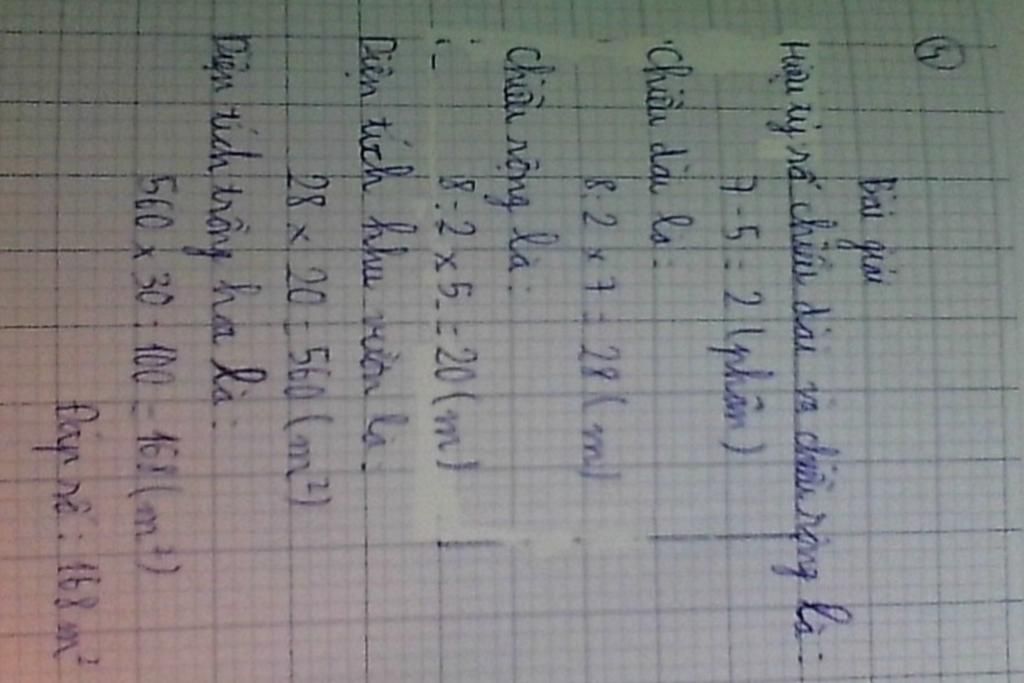 4
Bài giải
Hiệu tỷ số chiều dài và chiều rộng là:
7 - 5 = 2 (phần)
Chiều dài là:
8 : 2 x 7 = 28 (m)
Chiều rộng là:
8 : 2 x 5 = 20 (m)
Diện tích khu vườn là:
28 x 20 = 560 (m²)
Diện tích trồng hoa là:
560 x 30 : 100 = 168 (m²)
Đáp số : 168 m²